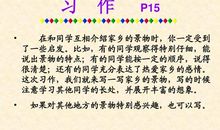 习 作 P15
在和同学互相介绍家乡的景物时，你一定受到了一些启发。比如，有的同学观察得特别仔细，能说出景物的特点；有的同学能按一定的顺序，说得很清楚；还有的同学充分表达了热爱家乡的感情。这次习作，我们就来写一写家乡的景物，写的时候注意学习其他同学的长处，并展开丰富的想象。
如果对其他地方的景物特别感兴趣，也可以写。